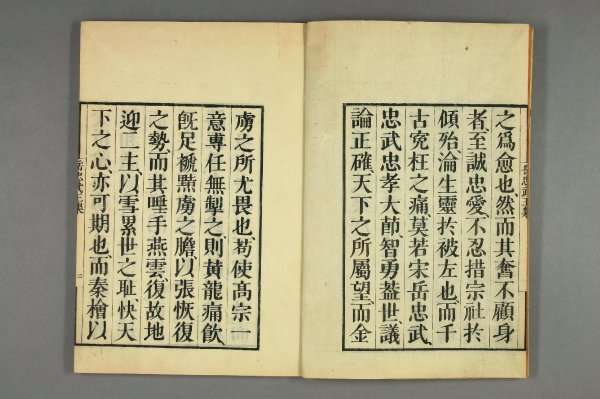 之爲愈也然而其奮不顧身
者至誠忠愛不忍措宗社於
傾殆淪生靈於被左也而千
古寃枉之痛莫若宋岳忠武
忠武忠孝大節智勇葢世議
論正確天下之所屬望而金
虜之所尤畏也苟使高宗一
意專任無掣之則黄龍痛飲
旣足褫黠虜之膽以張恢復
之勢而其唾手燕雲復故地
迎二主以雪累世之耻快天
下之心亦可期也而秦檜以